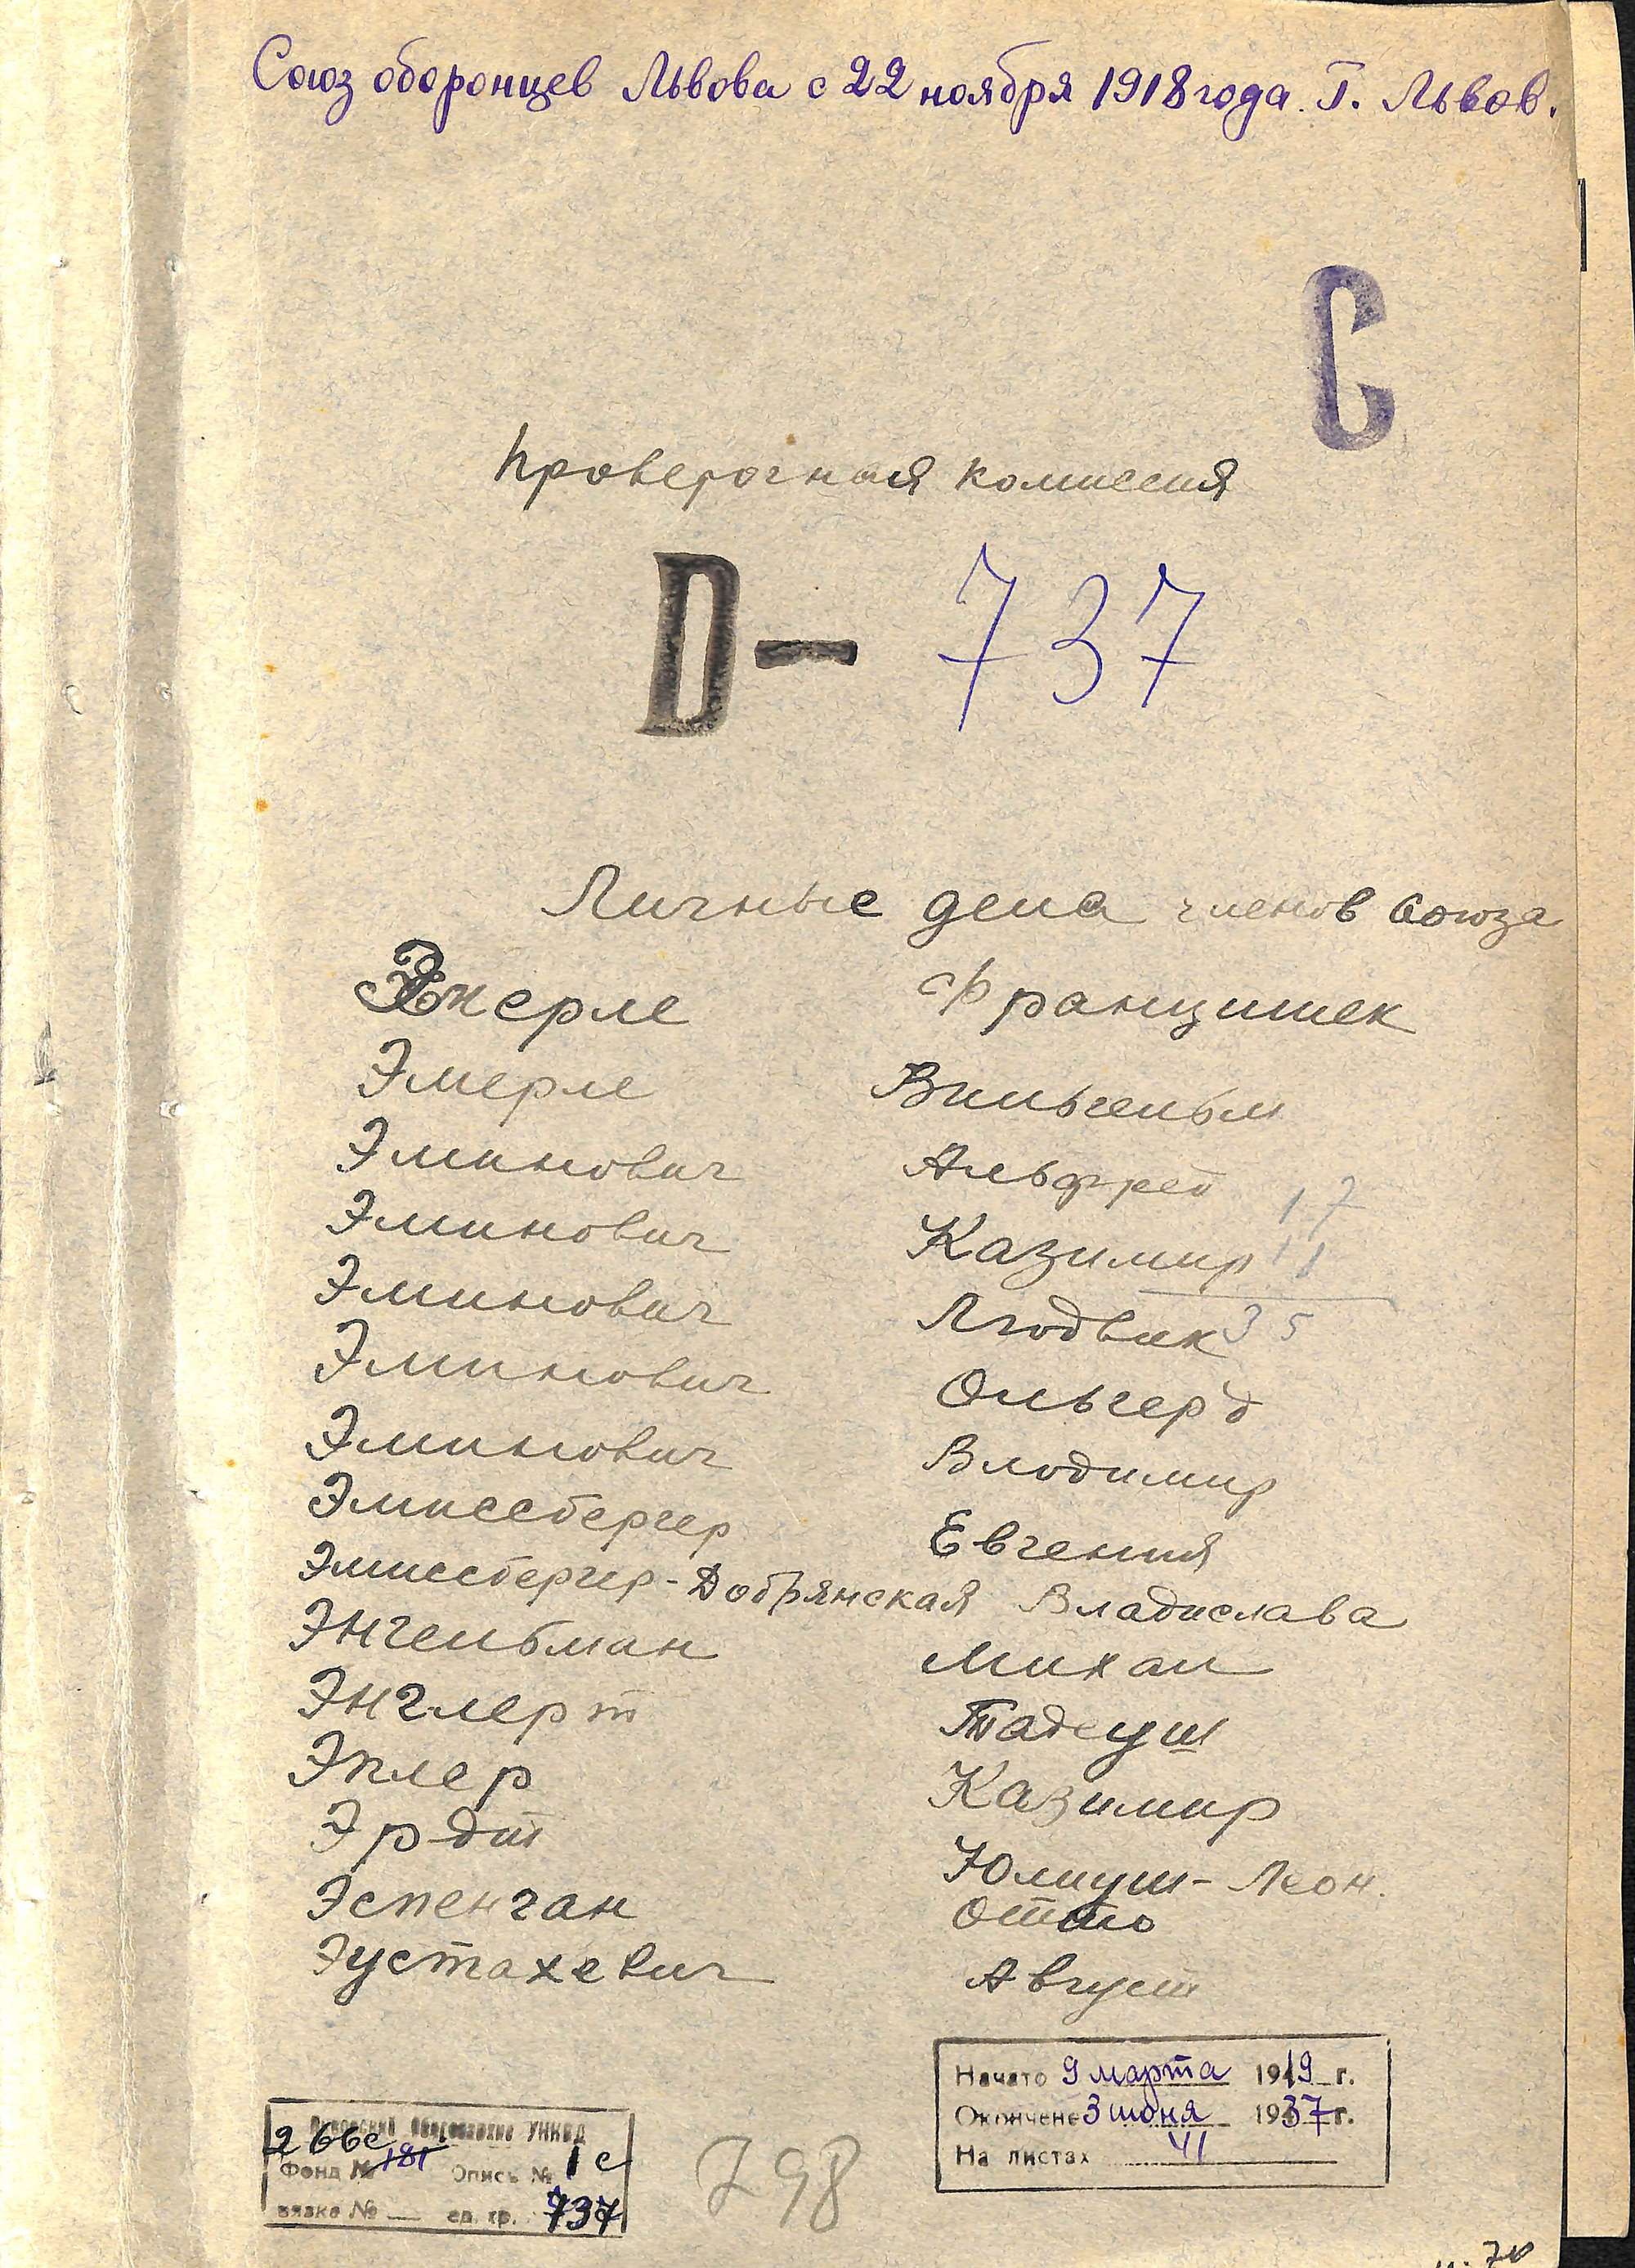 Союз оборонцев Львова с 22 ноября 1918 года. Г. Львов.
С
Проверочная комиссия
D— 737
Личные дела членов союза
Экерле Францишек
Эмерле Вильгельм
Эминович Альфред
17
Эминович Казимир 11
Эминович Людвик 35
Эминович Ольгерд
Эминович Влодимир
Эмиссбергер Евгения
Эмиссбергер-Добрянская Владислава
Энгельман Михал
Энглерт Тадеуш
Эплер Казимир
Эрдт Юлиуш-Леон.
Эспенган Отто
Эустахевич Август
Начато 9 марта 1919 г.
Окончено 3 июня 1937 г.
На листах 41
266с
Фонд № 181 Опись № 1 с
вязка № — ед. хр. 737
798